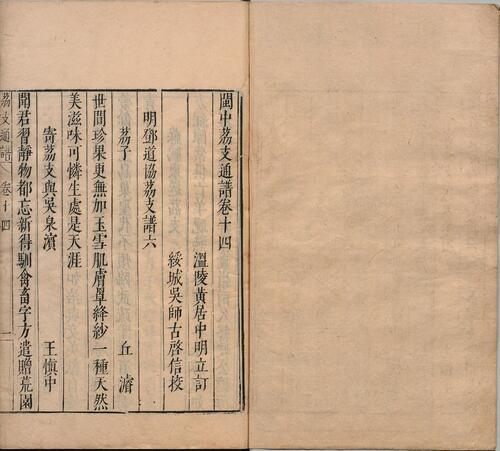 閩中荔支通譜卷十四
溫陵黃居中明立訂
綏城吳師古啓信校
明鄧道協荔支譜六
荔子 丘濬
世間珍果更無加玉雪肌膚罩絳紗一種天然
美滋味可憐生處是天涯
寄荔支與吳泉濱 王愼中
閒君習靜物都忘新得馴禽畜字方遣贈荒園
荔支通譜 卷十四 一